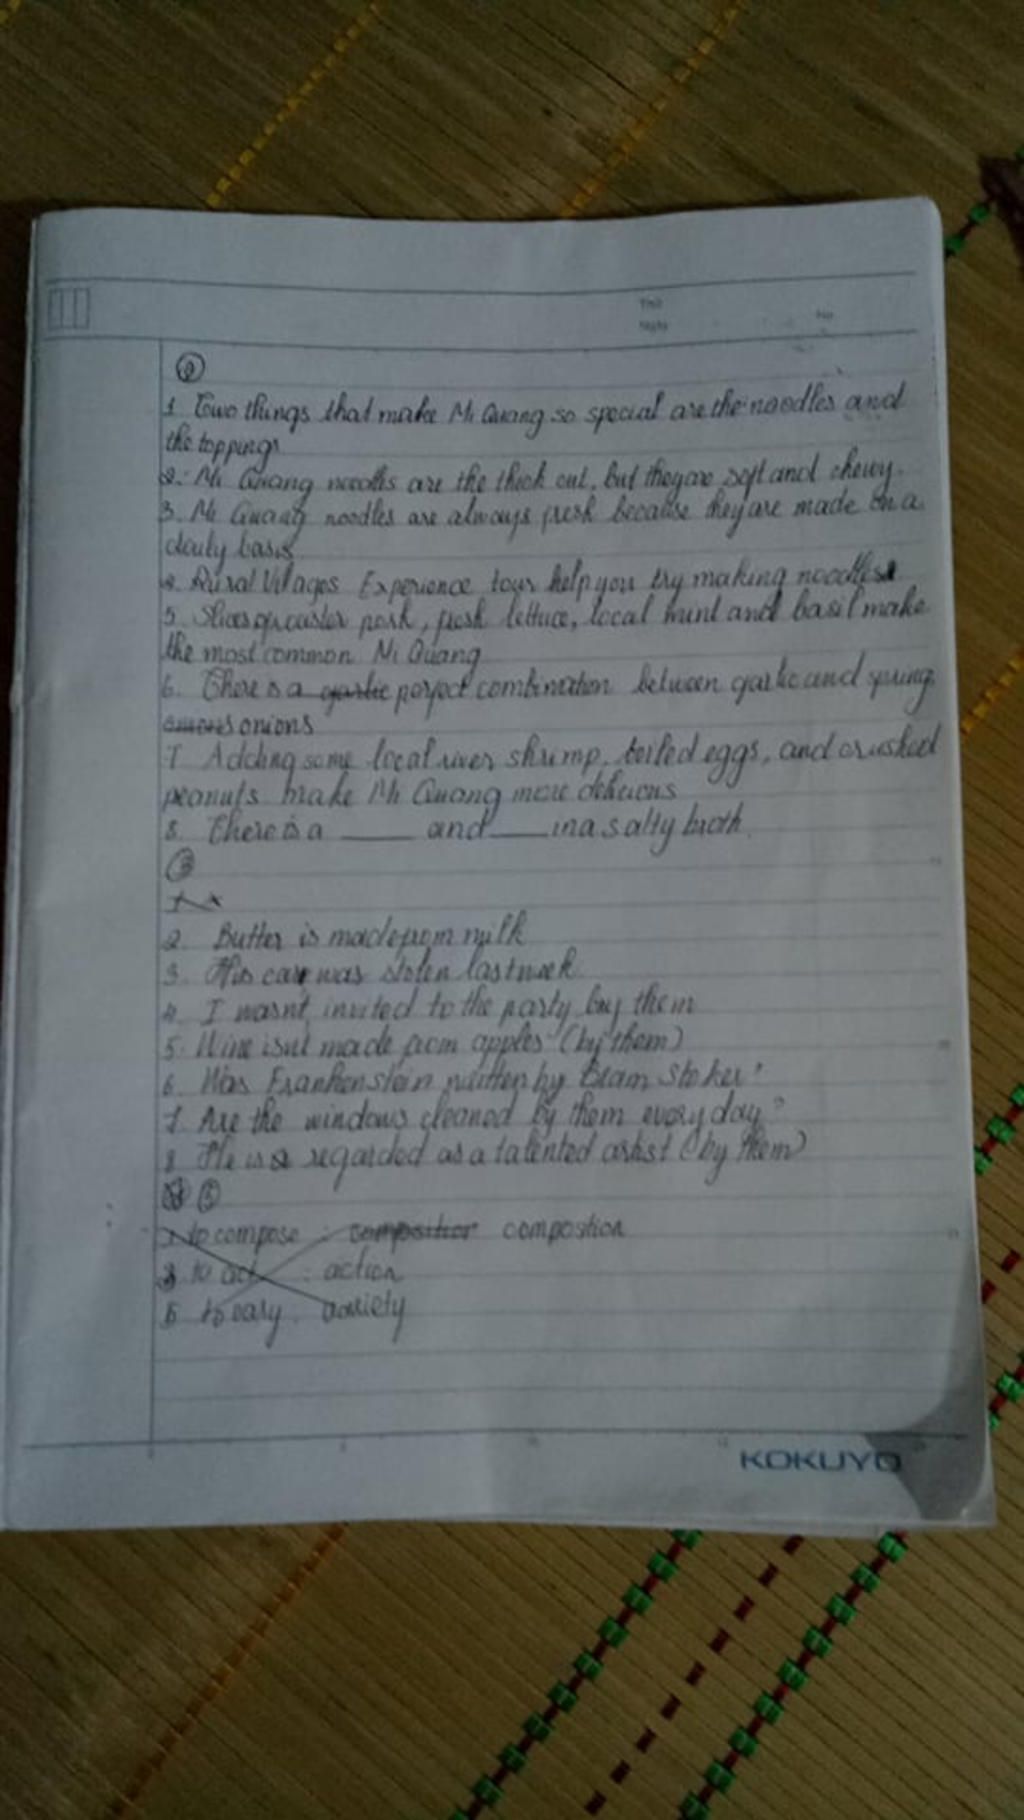 Thứ
Ngày
No
②
1 Two things that make Mi Quang so special are the noodles and
the toppings
2. Mi Quang noodles are the thick cut, but they are soft and chewy.
3. Mi Quang noodles are always fresh because they are made on a
daily basis
4. Rural Villages Experience tour help you try making noodles
5. Slices of pork, fresh lettuce, local mint and basil make
the most common Mi Quang
6. There is a garlic perfect combination between garlic and spring
onions onions
7 Adding some local river shrimp, boiled eggs, and crushed
peanuts make Mi Quang more delicious
8. There is a ____ and ____ in a salty broth.
③
1
2. Butter is made from milk
3. His car was stolen last week
4. I wasn't invited to the party by them
5. Wine isn't made from apples (by them)
6. Was Frankenstein written by Bram Stoker?
7. Are the windows cleaned by them every day?
8 He is regarded as a talented artist (by them)
⑤
1 to compose : composition compostion
3 to act : action
5 to vary : variety
KOKUYO